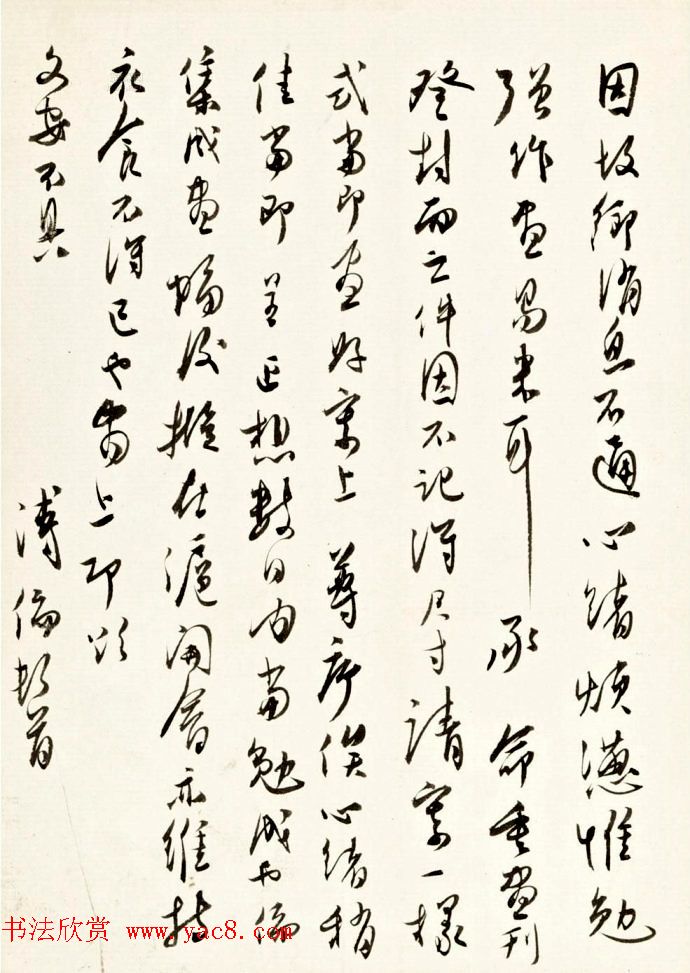 因故鄉消息不通心緒煩懣惟勉
強作畫易米耳承命重畫刊
登封面之件因不記得尺寸請寄一樣
式當即畫好寄上尊序俟心緒稍
佳當即呈正想數日內當勉成也儒
集成畫幅後擬在滬開會亦維持
衣食不得已也耑上即頌
文安不具
溥儒頓首
书法欣赏 www.yac8.com